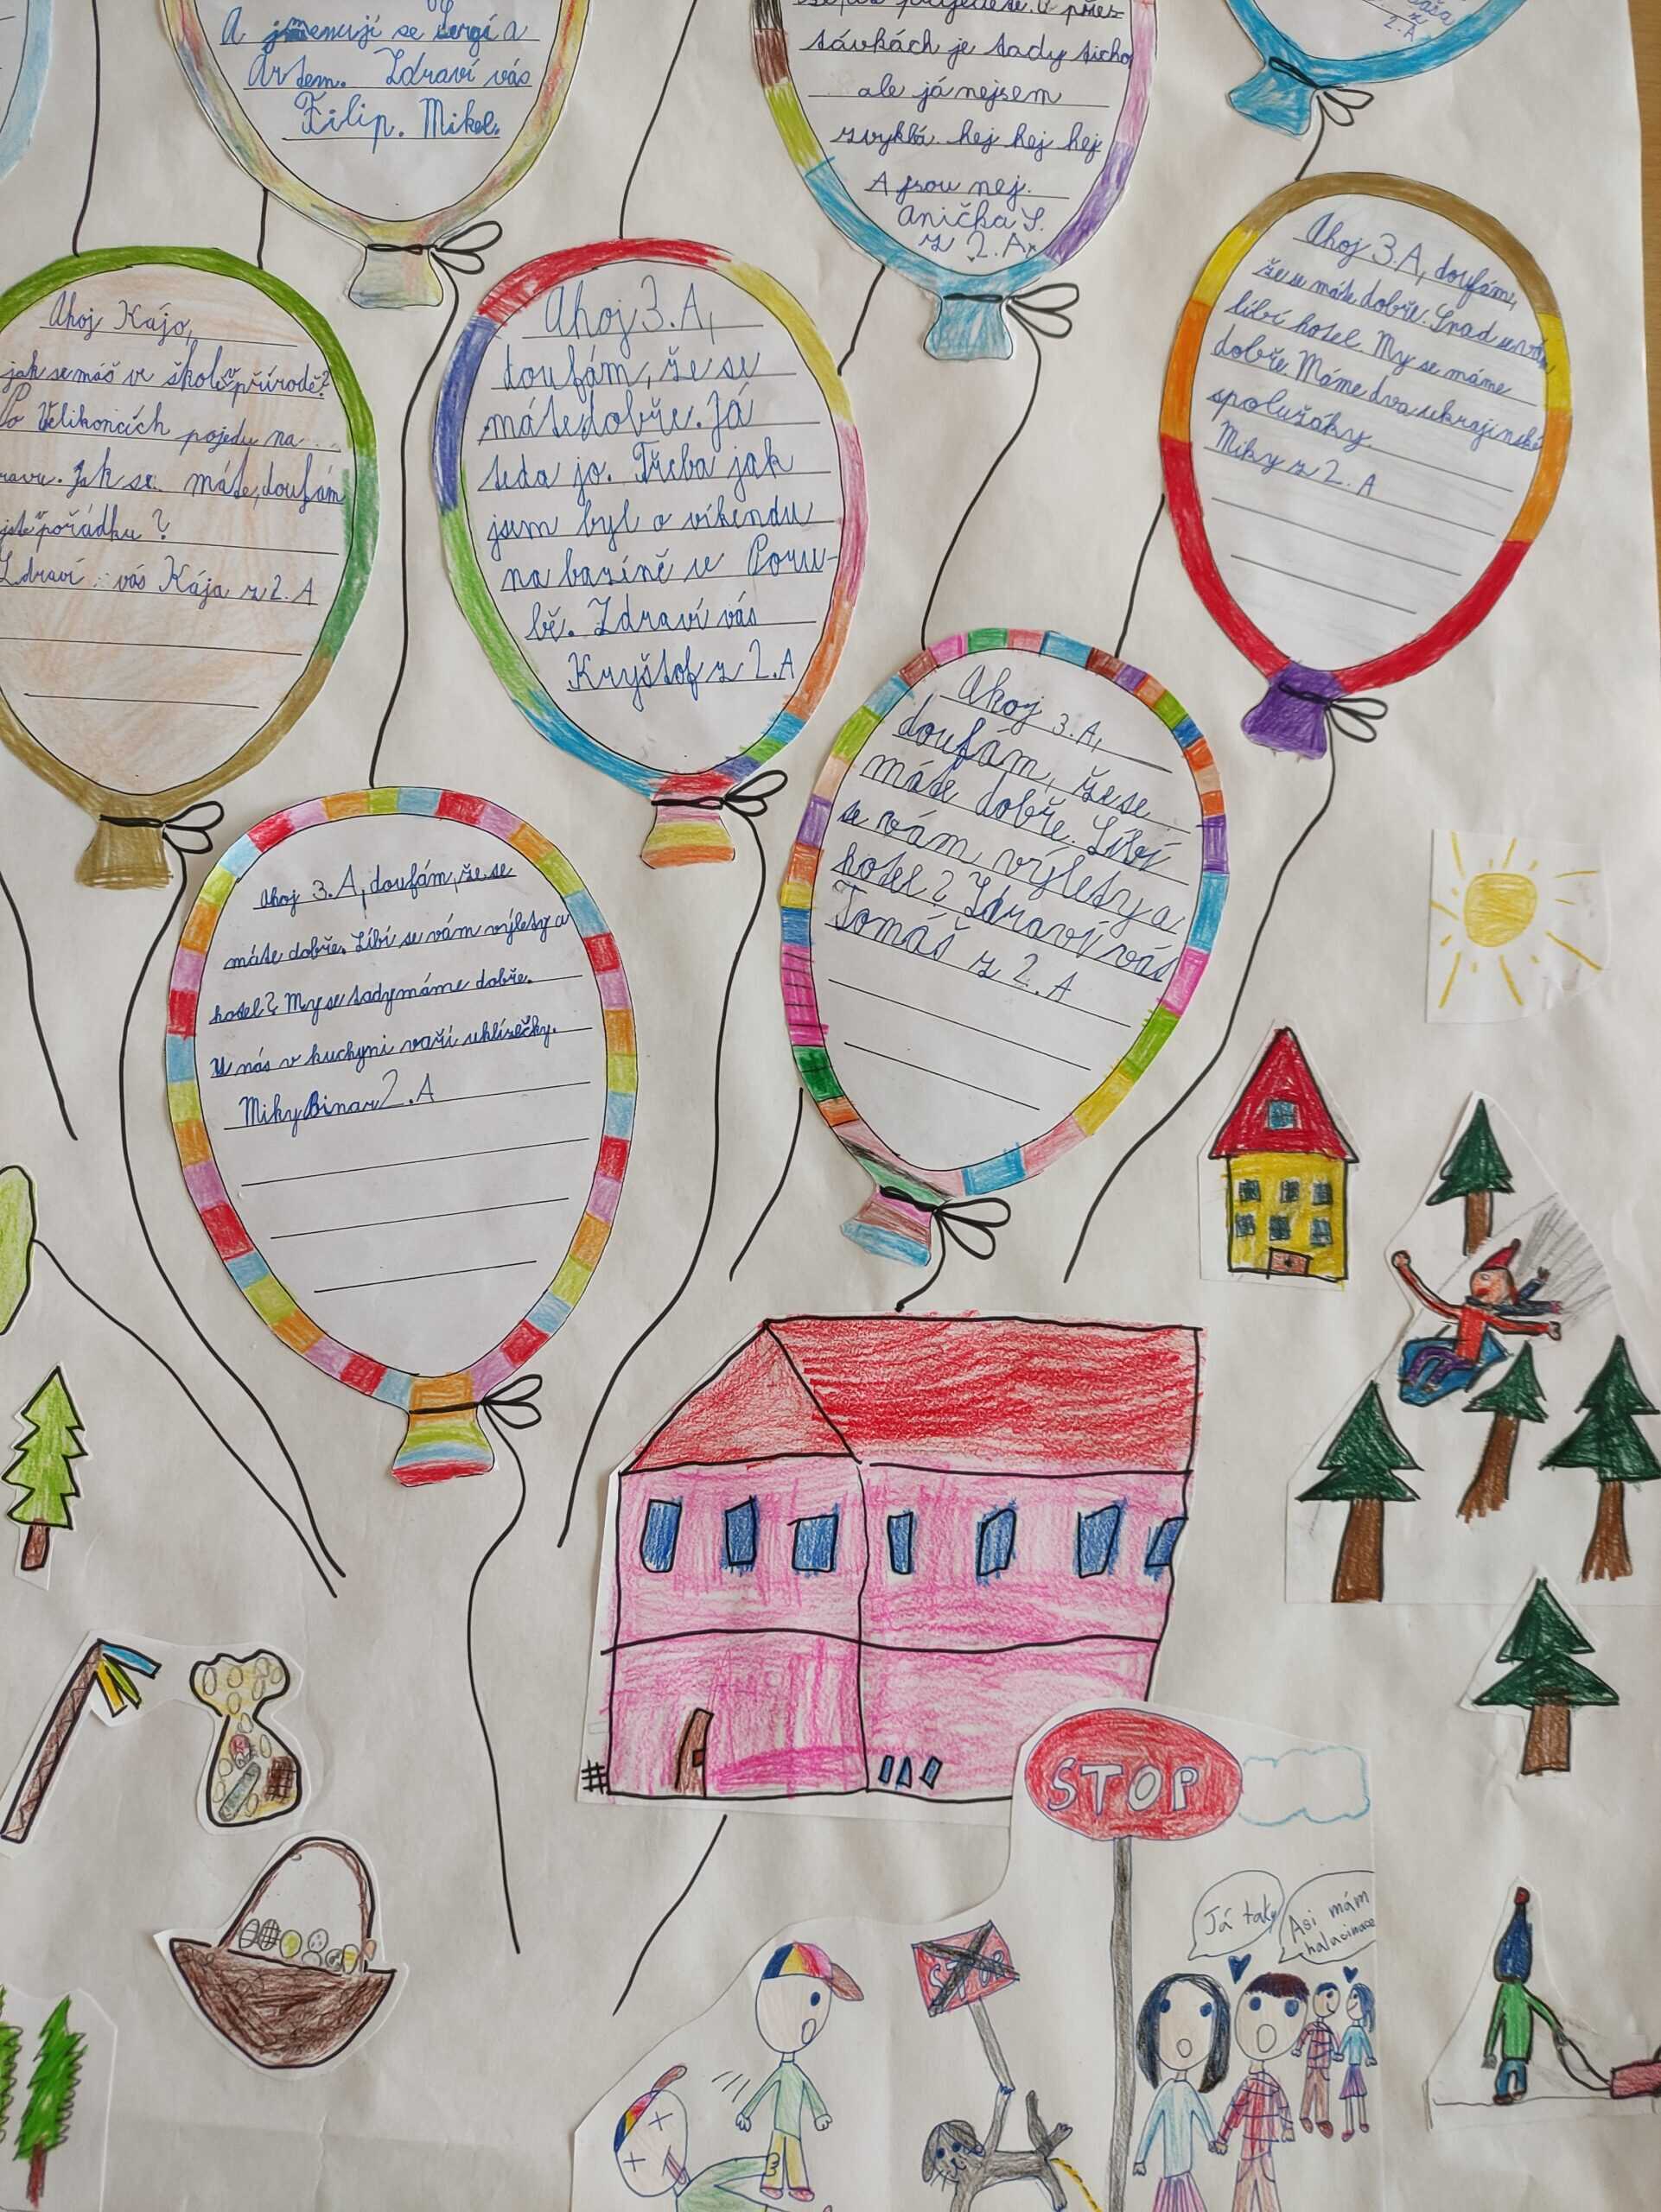 A jmenují se Sergi a
Artem. Zdraví vás
Filip. Mikel.
távkách je tady ticho
ale já nejsem
zvyklá. hej hej hej
A jsou nej.
Anička S.
z 2.A
2.A
Ahoj 3.A, doufám,
že se máte dobře. Snad se vám
líbí hotel. My se máme
dobře Máme dva ukrajinské
spolužáky
Miky z 2.A
Ahoj Kájo,
jak se máš ve škole v přírodě?
Po Velikonocích pojedu na
Jak se máte, doufám
jste v pořádku?
Zdraví vás Kája z 2.A
Ahoj 3.A,
doufám, že se
máte dobře. Já
teda jo. Třeba jak
jsem byl o víkendu
na bazíně ve Poru-
bě. Zdraví vás
Kryštof z 2.A
Ahoj 3.A,
doufám, že se
máte dobře. Líbí
se vám výlety a
hotel? Zdraví vás
Tomáš z 2.A
Ahoj 3.A, doufám, že se
máte dobře. Líbí se vám výlety a
hotel? My se tady máme dobře.
U nás v kuchyni vaří uklízečky.
Miky Binar 2.A
STOP
Já taky
Asi mám
halucinace
STOP